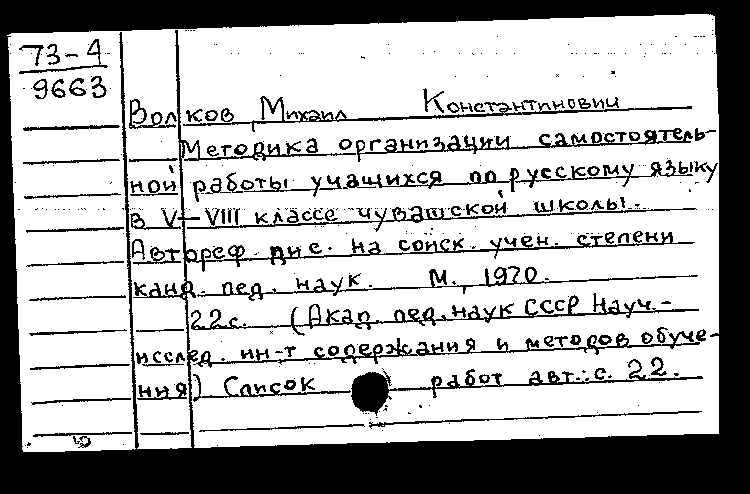 73-4
9663
Волков, Михаил Константинович
Методика организации самостоятель-
ной работы учащихся по русскому языку
в V-VIII классе чувашской школы.
Автореф. дис. на соиск. учен. степени
канд. пед. наук. М., 1970.
22 с. (Акад. пед. наук СССР Науч.-
исслед. ин-т содержания и методов обуче-
ния) Список работ авт.: с. 22.